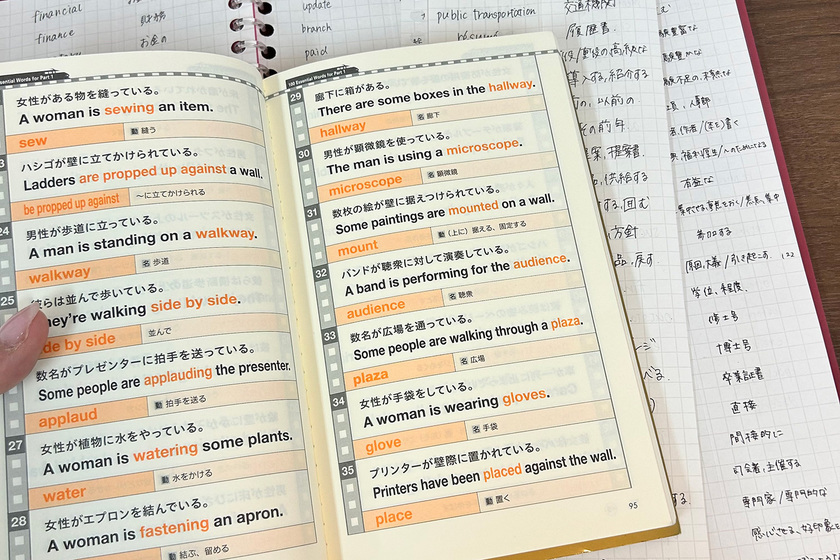 financial
finance
財務
お金の
update
branch
paid
public transportation
交通機関
履歴書
Essential Words for Part 1
女性がある物を縫っている。
A woman is sewing an item.
sew
動 縫う
ハシゴが壁に立てかけられている。
Ladders are propped up against a wall.
be propped up against
〜に立てかけられる
24
男性が歩道に立っている。
A man is standing on a walkway.
walkway
名 歩道
25
彼らは並んで歩いている。
They're walking side by side.
side by side
並んで
数名がプレゼンターに拍手を送っている。
Some people are applauding the presenter.
applaud
動 拍手を送る
27
女性が植物に水をやっている。
A woman is watering some plants.
water
動 水をかける
28
女性がエプロンを結んでいる。
A woman is fastening an apron.
fasten
動 結ぶ、留める
100 Essential Words for Part 1
29
廊下に箱がある。
There are some boxes in the hallway.
hallway
名 廊下
30
男性が顕微鏡を使っている。
The man is using a microscope.
microscope
名 顕微鏡
31
数枚の絵が壁に据えつけられている。
Some paintings are mounted on a wall.
mount
動 (上に)据える、固定する
32
バンドが聴衆に対して演奏している。
A band is performing for the audience.
audience
名 聴衆
33
数名が広場を通っている。
Some people are walking through a plaza.
plaza
名 広場
34
女性が手袋をしている。
A woman is wearing gloves.
glove
名 手袋
35
プリンターが壁際に置かれている。
Printers have been placed against the wall.
place
動 置く
95
導入する,紹介する
以前の
その前年
提案書
供給する
囲む
方針
参加する
学位、程度
修士号
博士号
卒業証書
直接
間接的に
司会者、主催する
専門家/専門的な